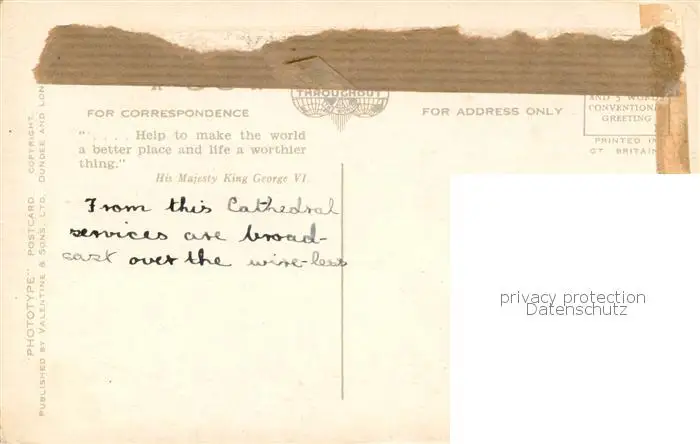 THROUGHOUT
FOR CORRESPONDENCE
FOR ADDRESS ONLY
AND 5 WORDS
CONVENTIONAL
GREETING
PRINTED IN
GT BRITAIN
". . . . Help to make the world
a better place and life a worthier
thing."
His Majesty King George VI.
From this Cathedral
services are broad-
cast over the wire-less
"PHOTOTYPE" POSTCARD COPYRIGHT.
PUBLISHED BY VALENTINE & SONS, LTD. DUNDEE AND LON
privacy protection
Datenschutz